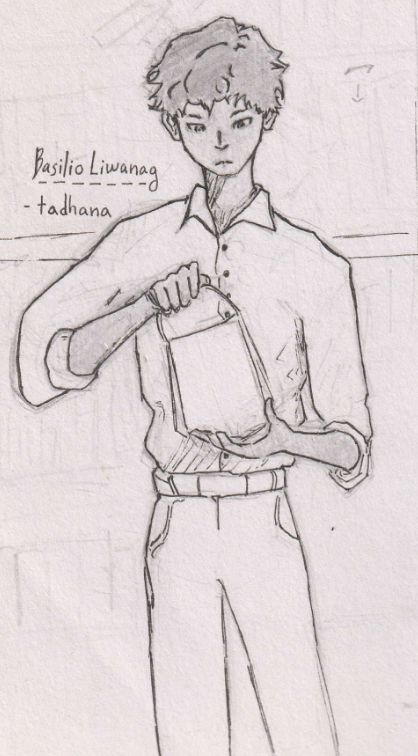 Basilio Liwanag
- tadhana